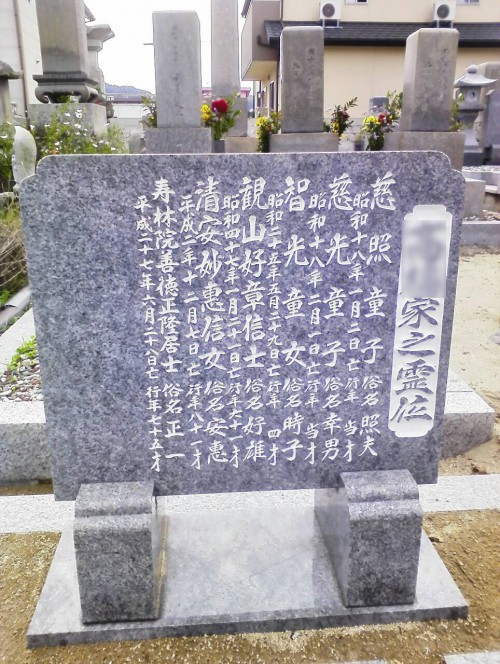 家之霊位
慈照童子 俗名 照夫
昭和十八年一月二日亡 行年 当才
慈光童子 俗名 幸男
昭和十八年二月一日亡 行年 当才
智光童女 俗名 時子
昭和二十五年五月二十九日亡 行年 四才
観山好章信士 俗名 好雄
昭和四十七年一月二十一日亡 行年六十一才
清安妙惠信女 俗名 安惠
平成二年十二月七日亡 行年八十一才
寿林院善徳正隆居士 俗名 正一
平成二十七年六月二十日亡 行年七十五才